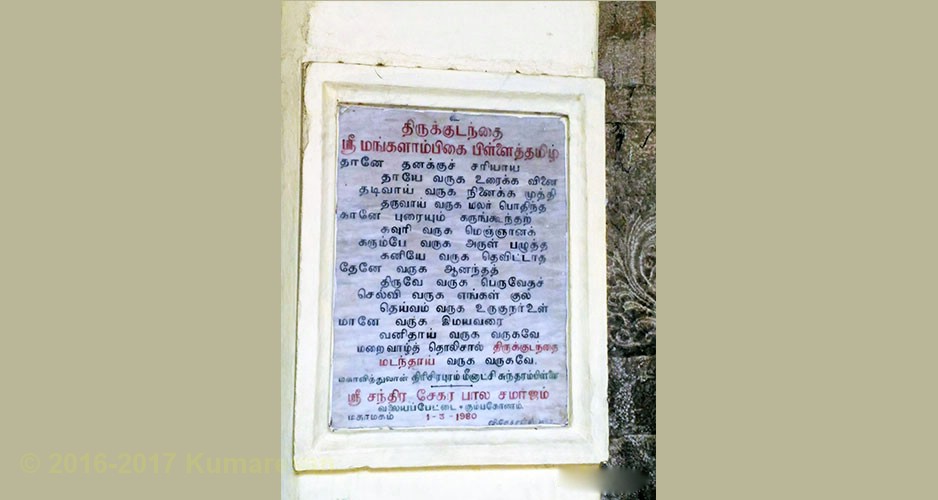 திருக்குடந்தை
ஸ்ரீ மங்களாம்பிகை பிள்ளைத்தமிழ்
தானே தனக்குச் சரியாய
தாயே வருக உரைக்க வினை
தடிவாய் வருக நினைக்க முத்தி
தருவாய் வருக மலர் பொதிந்த
கானே புரையும் கருங்கூந்தற்
கவுரி வருக மெஞ்ஞானக்
கரும்பே வருக அருள் பழுத்த
கனியே வருக தெவிட்டாத
தேனே வருக ஆனந்தத்
திருவே வருக பெருவேதச்
செல்வி வருக எங்கள் குல
தெய்வம் வருக உருகுநர் உள்
மானே வருக இமயவரை
வனிதாய் வருக வருகவே
மறைவாழ்த் தொலிசால் திருக்குடந்தை
மடந்தாய் வருக வருகவே.
மகாவித்துவான் திரிசிரபுரம் மீனாட்சி சுந்தரம்பிள்ளை
ஸ்ரீ சந்திர சேகர பால சமாஜம்
வலையப்பேட்டை கும்பகோணம்
மகாமகம் 1-3-1980
© 2016-2017 Kumar